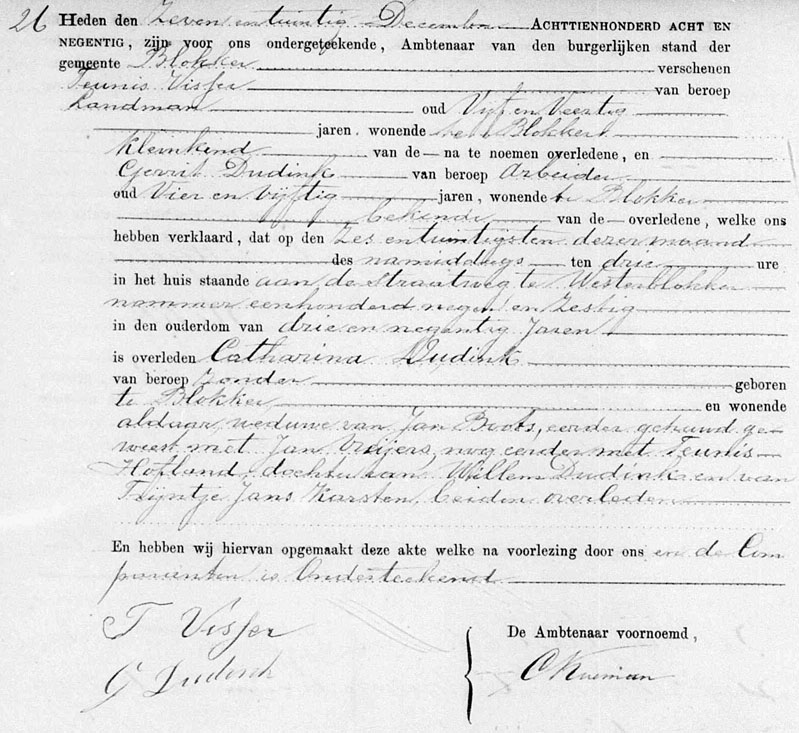 26 Heden den Zeven en twintig December ACHTTIENHONDERD ACHT EN
NEGENTIG, zijn voor ons ondergeteekende, Ambtenaar van den burgerlijken stand der
gemeente Blokker verschenen
Teunis Visser van beroep
Landman oud Vijf en Veertig
jaren, wonende te Blokker
kleinkind van de na te noemen overledene, en
Gerrit Dudink van beroep Arbeider
oud Vier en Vijftig jaren, wonende te Blokker
bekende van de overledene, welke ons
hebben verklaard, dat op den Zes en twintigsten dezer maand
des namiddags ten drie ure
in het huis staande aan de Straatweg te Westerblokker
nummer eenhonderd negen en Zestig
in den ouderdom van drie en negentig Jaren
is overleden Catharina Dudink
van beroep zonder geboren
te Blokker en wonende
aldaar, weduwe van Jan Broers, eerder gehuwd ge-
weest met Jan nog eerder met Teunis
Hofland, dochter van Willem Dudink en van
Trijntje Jans Karsten, beiden overleden
En hebben wij hiervan opgemaakt deze akte welke na voorlezing door ons en de Com
paranten is Onderteekend
T Visser
De Ambtenaar voornoemd,
G Dudink